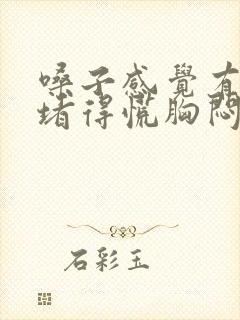 嗓子感覺有
堵得慌胸悶
石彩玉